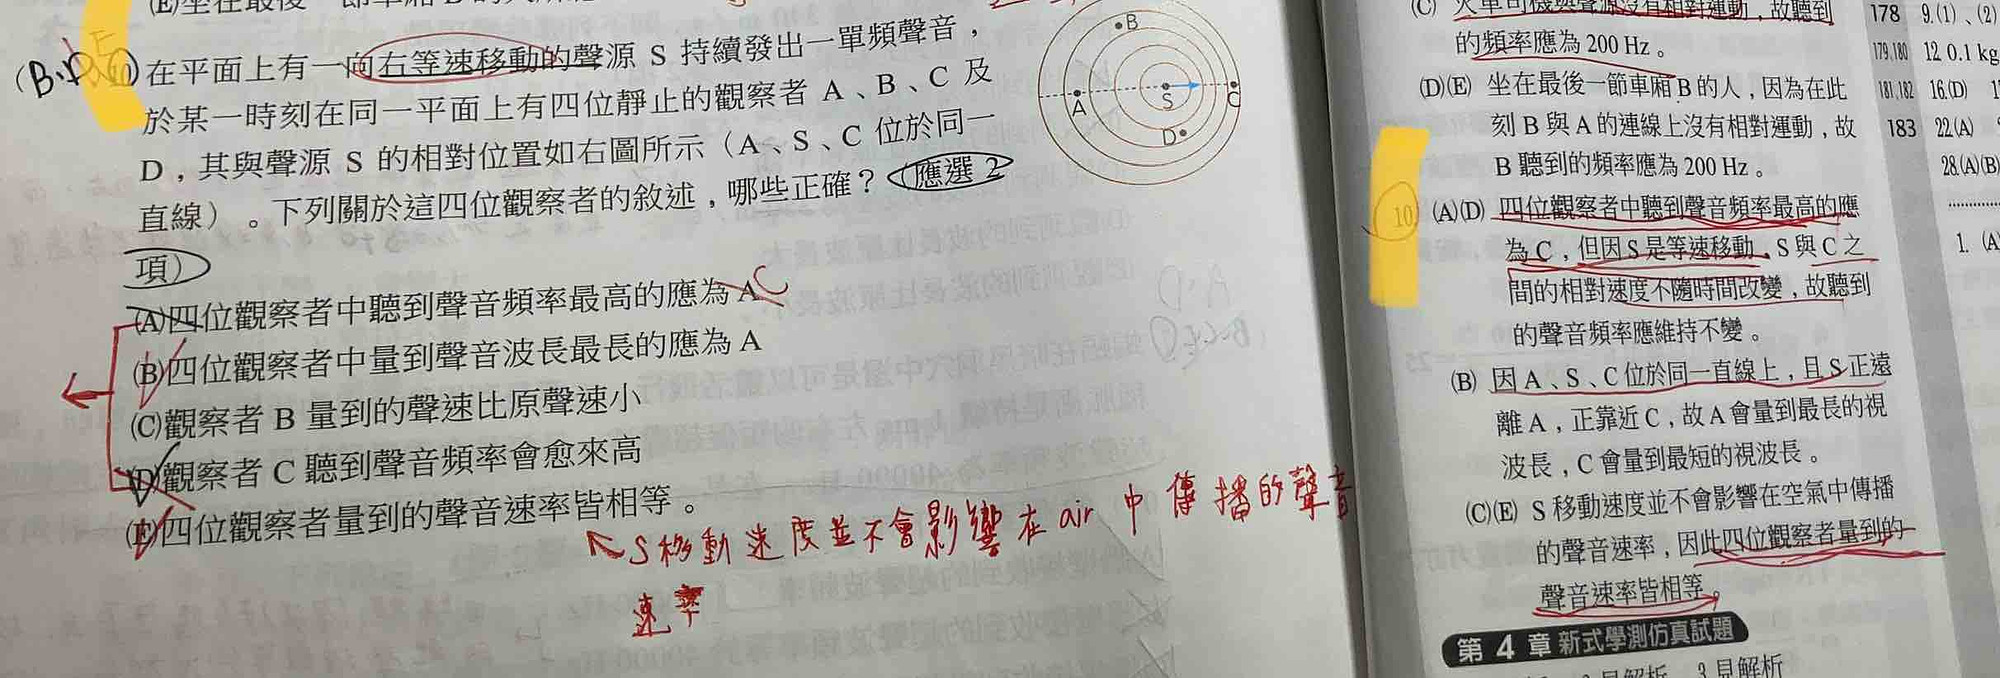 (B、E)
10 在平面上有一向右等速移動的聲源 S 持續發出一單頻聲音，
於某一時刻在同一平面上有四位靜止的觀察者 A、B、C 及
D，其與聲源 S 的相對位置如右圖所示（A、S、C 位於同一
直線）。下列關於這四位觀察者的敘述，哪些正確？（應選 2
項）
(A)四位觀察者中聽到聲音頻率最高的應為 A C
(B)四位觀察者中量到聲音波長最長的應為 A
(C)觀察者 B 量到的聲速比原聲速小
(D)觀察者 C 聽到聲音頻率會愈來高
(E)四位觀察者量到的聲音速率皆相等。
S移動速度並不會影響在 air 中傳播的聲音
速率
B
A
S
C
D
的頻率應為 200 Hz。
(D)(E) 坐在最後一節車廂 B 的人，因為在此
刻 B 與 A 的連線上沒有相對運動，故
B 聽到的頻率應為 200 Hz。
10 (A)(D) 四位觀察者中聽到聲音頻率最高的應
為 C，但因 S 是等速移動，S 與 C 之
間的相對速度不隨時間改變，故聽到
的聲音頻率應維持不變。
(B) 因 A、S、C 位於同一直線上，且 S 正遠
離 A，正靠近 C，故 A 會量到最長的視
波長，C 會量到最短的視波長。
(C)(E) S 移動速度並不會影響在空氣中傳播
的聲音速率，因此四位觀察者量到的
聲音速率皆相等。
第 4 章 新式學測仿真試題
3.見解析
178 9.(1)、(2)
179,180 12. 0.1 kg
181,182 16.(D)
183 22.(A)
28.(A)(B)
1. (A